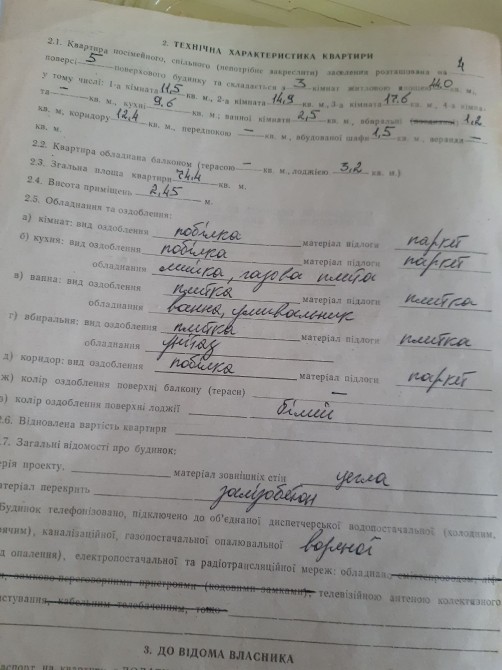 2. ТЕХНІЧНА ХАРАКТЕРИСТИКА КВАРТИРИ
2.1. Квартира посімейного, спільного (непотрібне закреслити) заселення розташована на 4
поверсі 5 поверхового будинку та складається з 3 кімнат житловою площею 44,0 кв. м,
у тому числі: 1-а кімната 11,5 кв. м., 2-а кімната 14,9 кв. м., 3-а кімната 17,6 кв. м., 4-а кімна-
та — кв. м., кухні 9,6 кв. м., ванної кімнати 2,5 кв. м., вбиральні 1,2
кв. м, коридору 12,4 кв. м., передпокою — кв. м., вбудованої шафи 1,5 кв. м., веранди —
кв. м.
2.2. Квартира обладнана балконом (терасою — кв. м., лоджією 3,2 кв. м.)
2.3. Загальна площа квартири 74,4 кв. м.
2.4. Висота приміщень 2,45 м.
2.5. Обладнання та оздоблення:
а) кімнат: вид оздоблення побілка матеріал підлоги паркет
б) кухня: вид оздоблення побілка матеріал підлоги паркет
обладнання мийка, газова плита
в) ванна: вид оздоблення плитка матеріал підлоги плитка
обладнання ванна, умивальник
г) вбиральня: вид оздоблення плитка матеріал підлоги плитка
обладнання унітаз
д) коридор: вид оздоблення побілка матеріал підлоги паркет
ж) колір оздоблення поверхні балкону (тераси) —
з) колір оздоблення поверхні лоджії білий
2.6. Відновлена вартість квартири
2.7. Загальні відомості про будинок:
серія проекту, матеріал зовнішніх стін цегла
матеріал перекрить залізобетон
Будинок телефонізовано, підключено до об'єднаної диспетчерської водопостачальної (холодним,
гарячим), каналізаційної, газопостачальної опалювальної водяної
опалення), електропостачальної та радіотрансляційної мереж: обладнано
замково-переговорними пристроями (кодовими замками), телевізійною антеною колективного
користування, кабельним телебаченням, тощо
3. ДО ВІДОМА ВЛАСНИКА